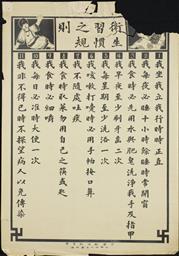 衛生習慣之規則
我坐我立我行時時正直
我每夜必睡十小時餘睡時常開窗
我食時必先用水與肥皂洗淨我手及指甲
我早夜至少刷牙齒二次
我每星期至少洗浴一次
我咳嗽打嚏時必用手帕按口鼻
我不隨處吐痰
我食時取菜勿用自己之筷或匙
我食時必細嚼
我每日必準時大便一次
我非不得已時不探望病人以免傳染